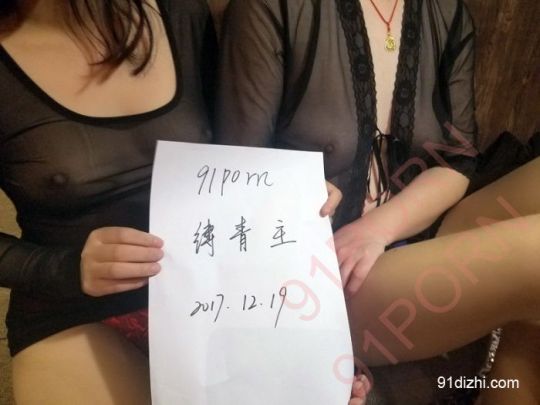 91porn
缚青主
2017.12.19
91PORN
91PORN
91dizhi.com